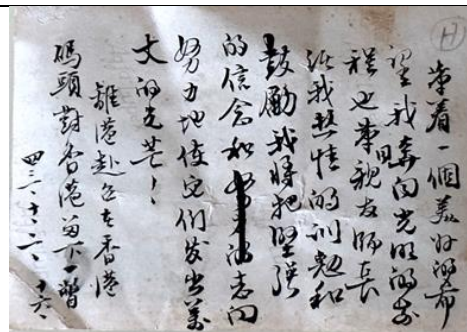 H
牽着一個美好的希
望我奔向光明的前
程也牽回親友師長
給我熱情的訓勉和
鼓勵我將把堅强
的信念和的志向
努力地使它們发出萬
丈的光芒！
離港赴台在香港
碼頭對香港留下一瞥
四三、十、